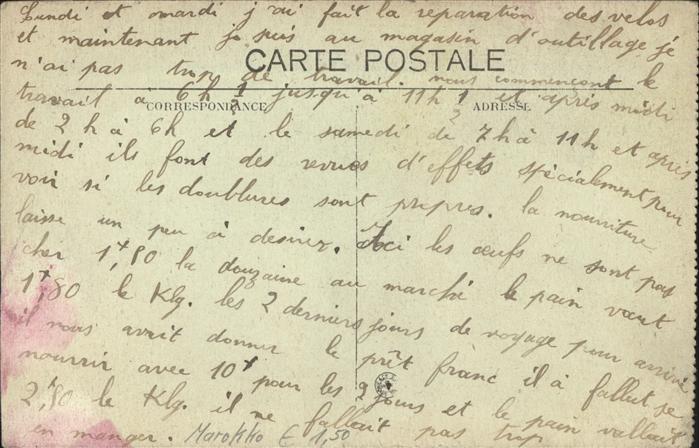 Lundi et mardi j'ai fait la reparation des velos
et maintenant je suis au magasin d'outillage je
CARTE POSTALE
n'ai pas trop de travail. nous commençont le
travail a 6h 1/2 jusqu'à 11h 1/2 et après midi
CORRESPONDANCE
ADRESSE
de 2h à 6h et le samedi de 7h à 11h et après
midi ils font des revues d'effets spécialement pour
voir si les doublures sont propres. la nourriture
laisse un peu à desirer. Ici les œufs ne sont pas
cher 1f,80 la douzaine au marché le pain vaut
1f,80 le Klg. les 2 derniers jours de voyage pour arrivé
il nous avait donner le prêt franc il à fallut se
nourrir avec 10f pour les 2 jours et le pain vallait
2f,80 le Klg. il ne fallait pas trop
en manger. Marokko E 1,50